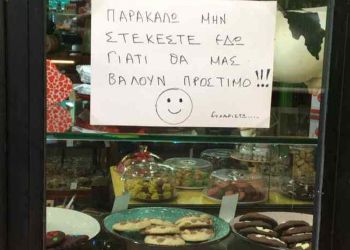 ΠΑΡΑΚΑΛΩ ΜΗΝ
ΣΤΕΚΕΣΤΕ ΕΔΩ
ΓΙΑΤΙ ΘΑ ΜΑΣ
ΒΑΛΟΥΝ ΠΡΟΣΤΙΜΟ!!!
Ευχαριστώ.....